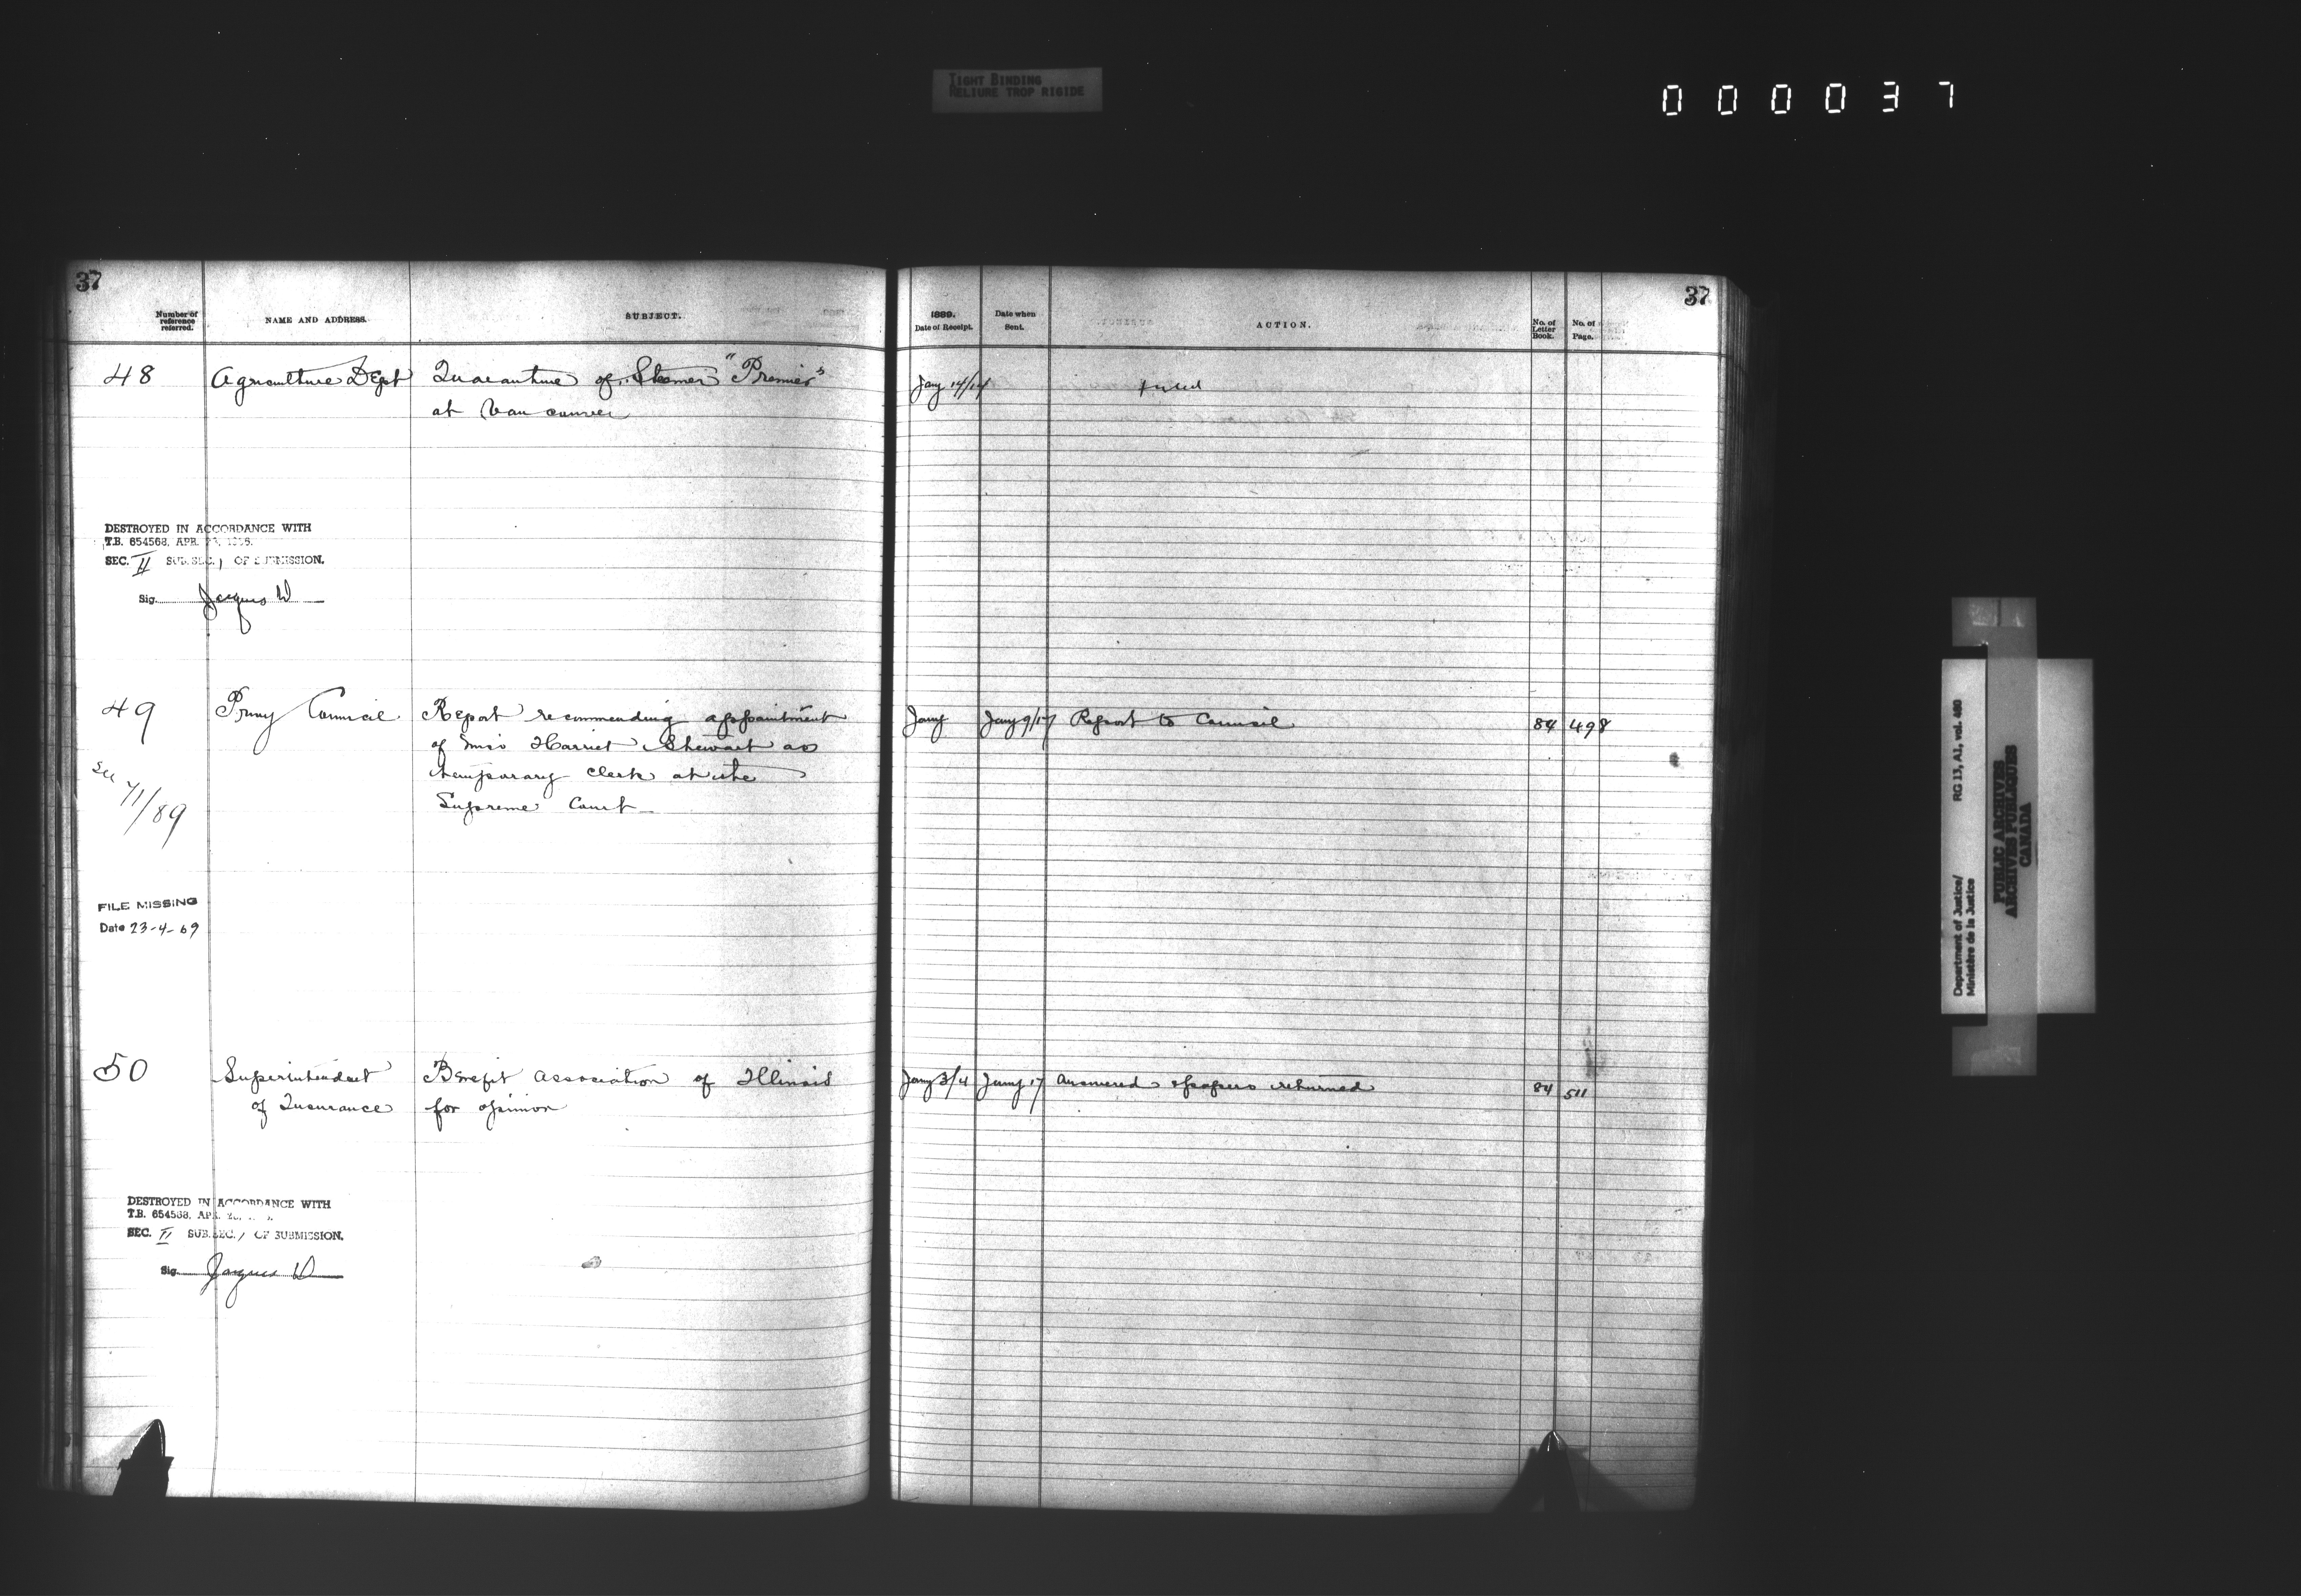 TIGHT BINDING
RELIURE TROP RIGIDE
000037
37
Number of reference referred.
NAME AND ADDRESS.
SUBJECT.
48
Agriculture Dept
Quarantine of Steamer "Premier"
at Vancouver
DESTROYED IN ACCORDANCE WITH
T.B. 654568, APR.
SEC. II SUB.SEC. 1 OF SUBMISSION.
Sig. Jacques W
49
Privy Council
Report recommending appointment
of Miss Harriet Stewart as
temporary clerk at the
Supreme Court
See
71/89
FILE MISSING
Date 23-4-69
50
Superintendent
of Insurance
Benefit Association of Illinois
for opinion
DESTROYED IN ACCORDANCE WITH
T.B. 654568, APR.
SEC. II SUB.SEC. 1 OF SUBMISSION.
Sig. Jacques W
37
1889.
Date of Receipt.
Date when Sent.
ACTION.
No. of Letter Book.
No. of Page.
Jany 14/14
Filed
Jany
Jany 9/17
Report to Council
84
498
Jany 3/4
Jany 17
Answered & papers returned
84
511
Department of Justice/ RG 13, A1, vol. 460
Ministère de la Justice
PUBLIC ARCHIVES
ARCHIVES PUBLIQUES
CANADA